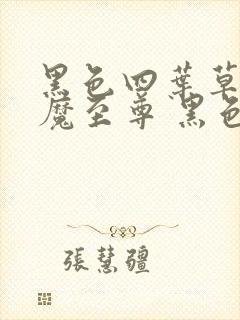 黑色四葉草
魔至尊 黑色
張慧疆